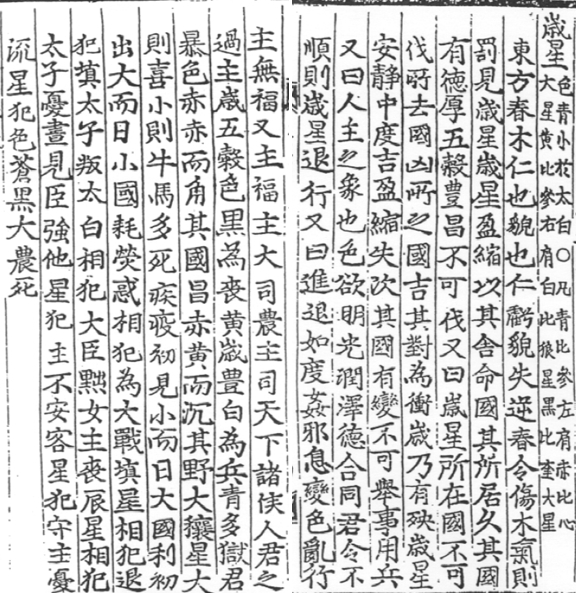 歲星
色青小於太白〇凡青比參左肩赤比心
大星黃比參右肩白比狼星黑比奎大星
東方春木仁也貌也仁虧貌失逆春令傷木氣則
罰見歲星歲星盈縮以其舍命國其所居久其國
有德厚五穀豊昌不可伐又曰歲星所在國不可
伐所去國凶所之國吉其對為衝歲乃有殃歲星
安静中度吉盈縮失次其國有變不可舉事用兵
又曰人主之象也色欲明光潤澤德合同君令不
順則歲星退行又曰進退如度姦邪息變色亂行
主無福又主福主大司農主司天下諸侯人君之
過主歲五穀色黑為喪黃歲豊白為兵青多獄君
暴色赤赤而角其國昌赤黃而沉其野大穰星大
則喜小則牛馬多死疾疫初見小而日大國利初
出大而日小國耗熒惑相犯為大戰塡星相犯退
犯塡太子叛太白相犯大臣黜女主喪辰星相犯
太子憂晝見臣強他星犯主不安客星犯守主憂
流星犯色蒼黑大農死